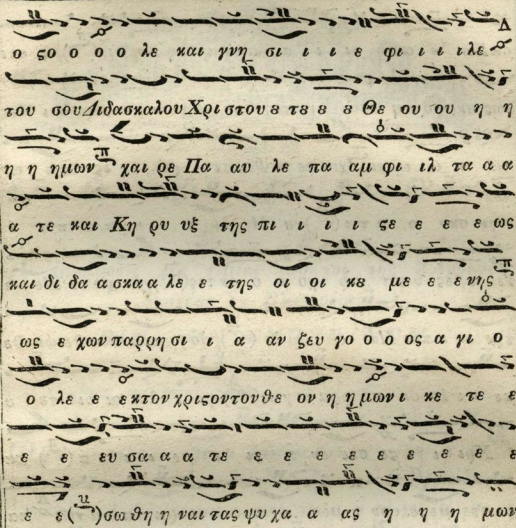 ο ϛο ο ο ο λε και γνη σι ι ι ε φι ι ι ιλε
του σου Διδασκαλου Χρι στου ȣ τȣ ȣ ȣ Θε ου ου η η
η η ημων χαι ρε Πα αυ λε πα αμ φι ιλ τα α α
α τε και Κη ρυ υξ της πι ι ι ι ϛε ε ε ε ως
και δι δα α σκα α λε ε της οι οι κȣ με ε ε νης
ως ε χων παρρη σι ι α αν ζευ γο ο ο ος α γι ο
ο λε ε ε κτον χριϛον τον θε ον η η μων ι κε τε ε
ε ε ευ σα α α τε ε ε ε ε ε ε ε ε ε ε
ε ε( )σω θη η ναι τας ψυ χα α ας η η η μων